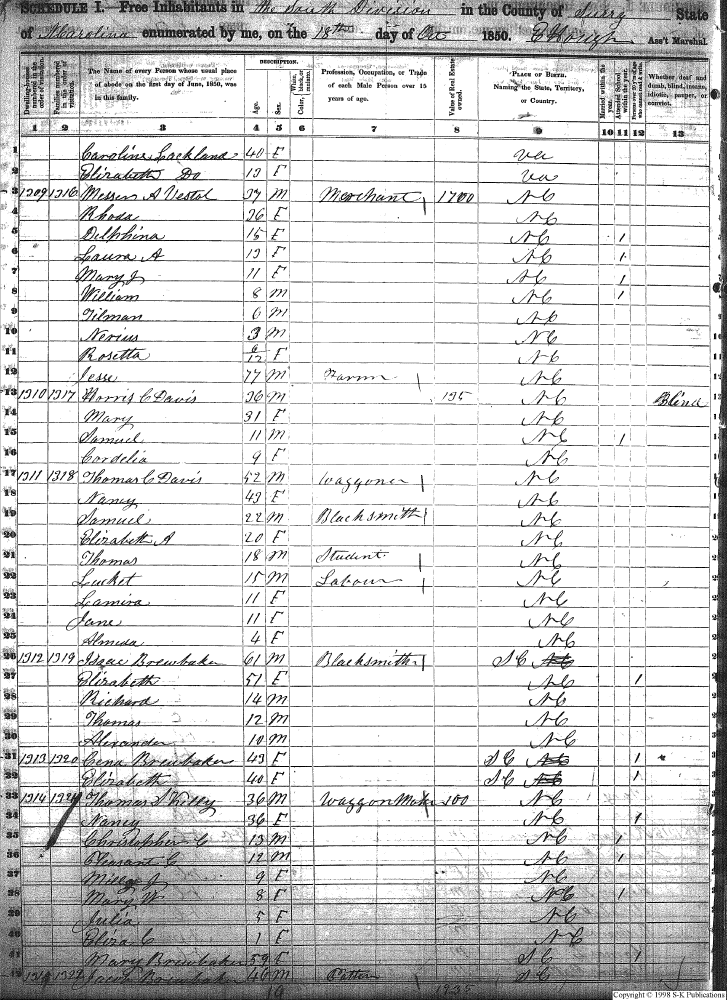 SCHEDULE I.—Free Inhabitants in the South Division in the County of Surry State
of N Carolina enumerated by me, on the 18th day of Oct 1850. Ass't Marshal.
DESCRIPTION.
Dwelling-houses numbered in the order of visitation.
Families numbered in the order of visitation.
The Name of every Person whose usual place of abode on the first day of June, 1850, was in this family.
Age.
Sex.
White, black, or mulatto.
Color,
Profession, Occupation, or Trade of each Male Person over 15 years of age.
Value of Real Estate owned.
PLACE OF BIRTH. Naming the State, Territory, or Country.
Married within the year.
Attended School within the year.
Persons over 20 y'rs of age who cannot read & write.
Whether deaf and dumb, blind, insane, idiotic, pauper, or convict.
1 2 3 4 5 6 7 8 9 10 11 12 13
1 Caroline Lackland 40 F Va
2 Elizabeth Do 13 F Va
3 1309 1316 A Vestal 37 M Merchant 1700 N C
4 Rhoda 36 F N C
5 Delphina 15 F N C 1
6 Laura A 13 F N C 1
7 Mary J 11 F N C 1
8 William 8 M N C 1
9 Tilman 6 M N C
10 Nerius 3 M N C
11 Rosetta 6/12 F N C
12 Jesse 77 M Farmr N C
13 1310 1317 Morris C Davis 36 M 135 N C Blind
14 Mary 31 F N C
15 Samuel 11 M N C 1
16 Cordelia 9 F N C
17 1311 1318 Thomas C Davis 52 M Waggoner N C
18 Nancy 43 F N C
19 Samuel 22 M Blacksmith N C
20 Elizabeth A 20 F N C
21 Thomas 18 M Student N C
22 Lucket 15 M Labour N C
23 Lamira 11 F N C
24 Jane 11 F N C
25 Almeda 4 F N C
26 1312 1319 Isaac Brewbaker 61 M Blacksmith S C N C
27 Elizabeth 51 F N C 1
28 Richard 14 M N C
29 Thomas 12 M N C
30 Alexander 10 M N C
31 1313 1320 Cena Brewbaker 43 F S C N C 1
32 Elizabeth 40 F S C N C 1
33 1314 1321 Thomas Kelly 36 M Waggon Maker 100 N C
34 Nancy 36 F N C 1
35 Christopher C 13 M N C 1
36 Pleasant C 12 M N C 1
37 J 9 F N C
38 Mary W 8 F N C 1
39 Julia 5 F N C
40 Eliza C 1 F N C
41 Mary Brewbaker 59 F S C 1
42 Jacob Brewbaker 40 M S C
1935
Copyright © 1998 S-K Publications